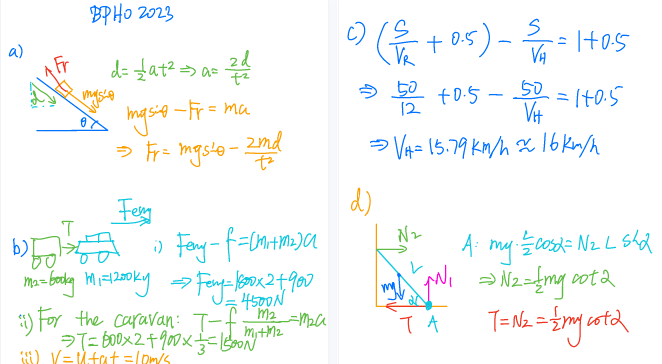 BPHO 2023
a)
Fr
d
mgsinθ
θ
d = ½at² ⇒ a = 2d/t²
mgsinθ - Fr = ma
⇒ Fr = mgsinθ - 2md/t²
b)
T
Feng
m₂=600kg m₁=1200kg
i) Feng - f = (m₁+m₂)a
⇒ Feng = 1800×2+900
= 4500N
ii) For the caravan: T - f m₂/(m₁+m₂) = m₂a
⇒ T = 600×2 + 900×⅓ = 1500N
iii) V = u + at = 10m/s
c) (S/V_R + 0.5) - S/V_H = 1+0.5
⇒ 50/12 + 0.5 - 50/V_H = 1+0.5
⇒ V_H = 15.79 km/h ≈ 16 km/h
d)
N₂
L
mg
N₁
α
T A
A: mg·L/2 cosα = N₂ L sinα
⇒ N₂ = ½mg cotα
T = N₂ = ½mg cotα